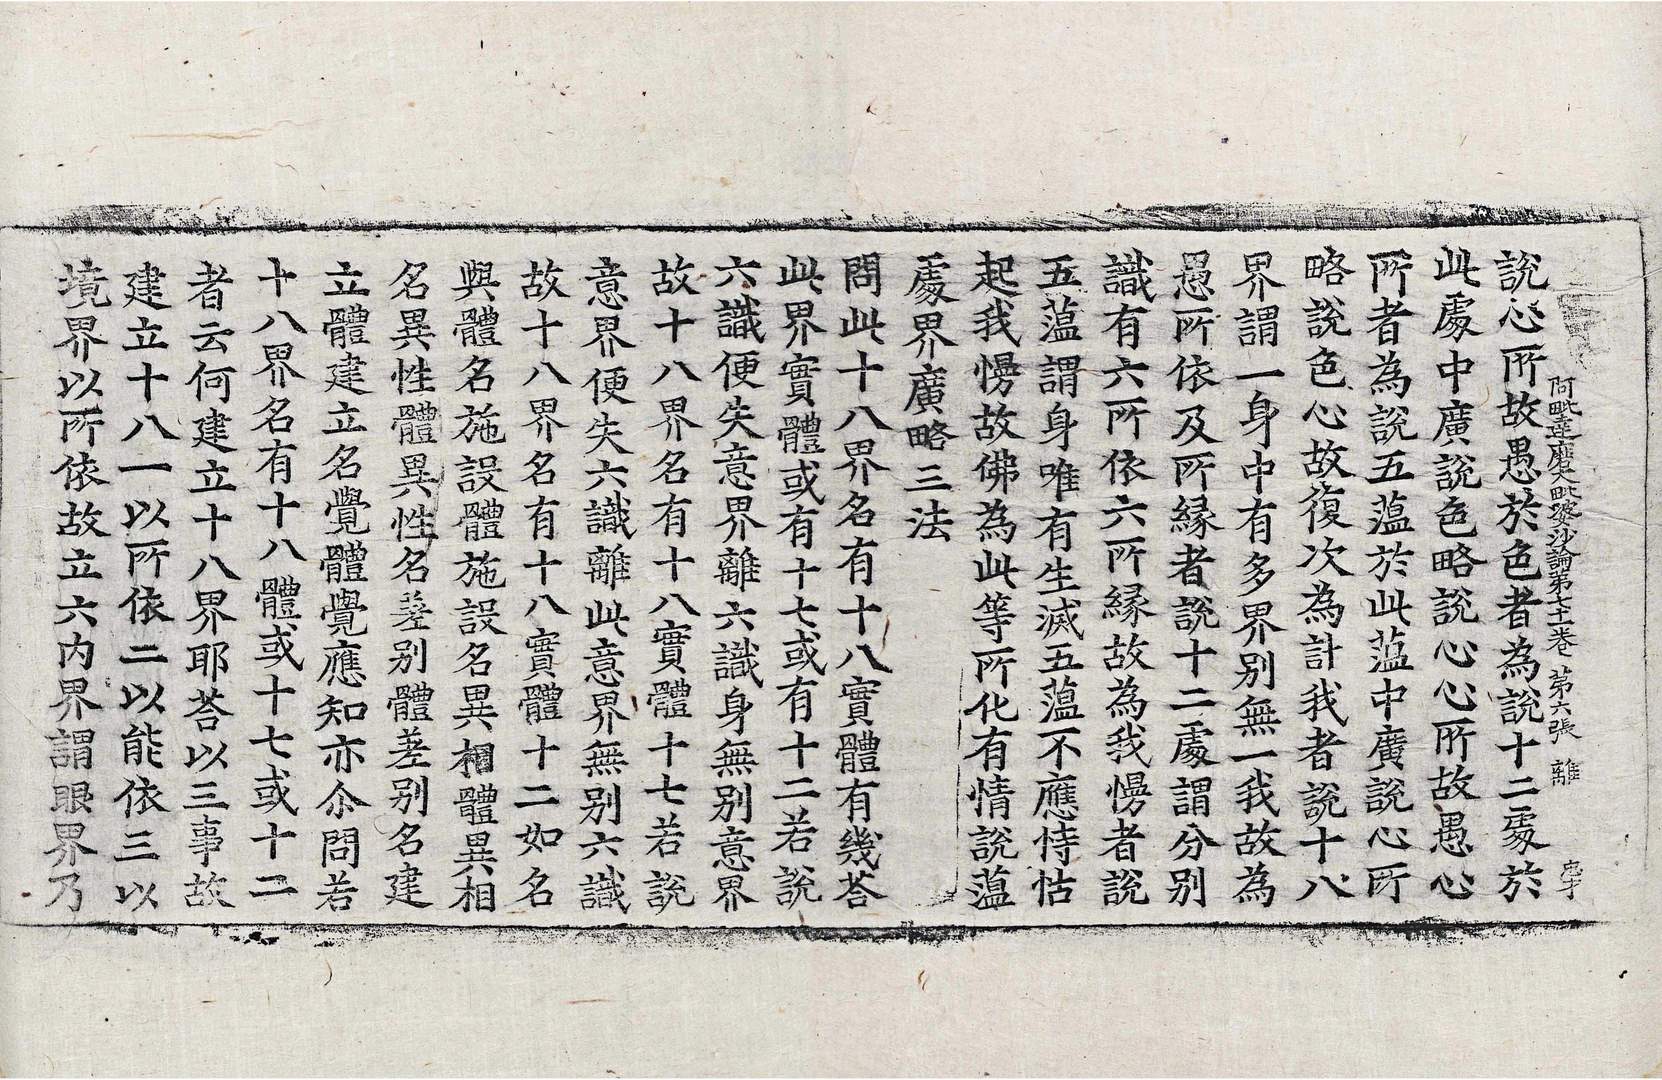 阿毗達磨大毗婆沙論第七十一卷 第六張 離
說心所故愚於色者為說十二處於
此處中廣說色略說心心所故愚心
所者為說五蘊於此蘊中廣說心所
略說色心故復次為計我者說十八
界謂一身中有多界別無一我故為
愚所依及所緣者說十二處謂分別
識有六所依六所緣故為我慢者說
五蘊謂身唯有生滅五蘊不應恃怙
起我慢故佛為此等所化有情說蘊
處界廣略三法
問此十八界名有十八實體有幾荅
此界實體或有十七或有十二若說
六識便失意界離六識身無別意界
故十八界名有十八實體十七若說
意界便失六識離此意界無別六識
故十八界名有十八實體十二如名
與體名施設體施設名異相體異相
名異性體異性名差別體差別名建
立體建立名覺體覺應知亦尒問若
十八界名有十八體或十七或十二
者云何建立十八界耶荅以三事故
建立十八一以所依二以能依三以
境界以所依故立六內界謂眼界乃